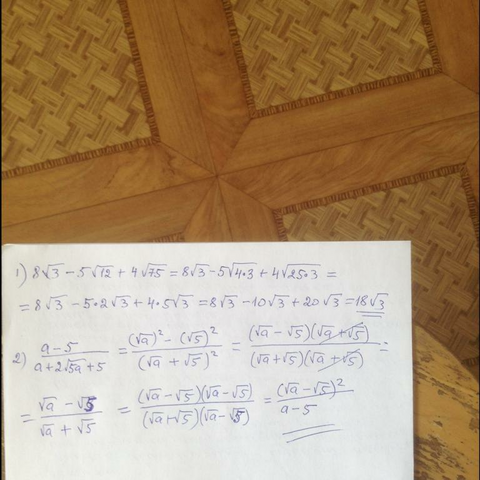 1) 8√3 - 5√12 + 4√75 = 8√3 - 5√(4·3) + 4√(25·3) =
= 8√3 - 5·2√3 + 4·5√3 = 8√3 - 10√3 + 20√3 = 18√3
2) (a-5)/(a+2√(5a)+5) = ((√a)² - (√5)²)/((√a + √5)²) = ((√a - √5)(√a + √5))/((√a+√5)(√a+√5)) =
= (√a - √5)/(√a + √5) = ((√a - √5)(√a - √5))/((√a+√5)(√a-√5)) = (√a - √5)²/(a-5)